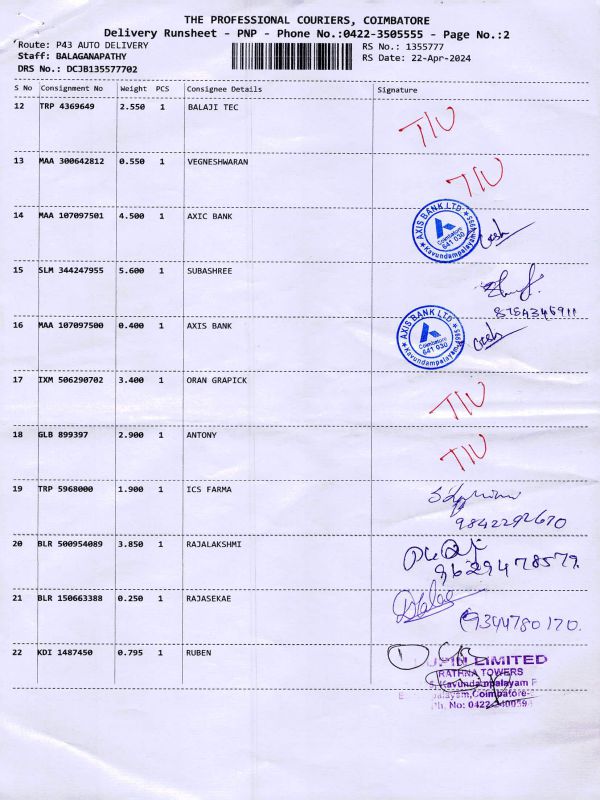 THE PROFESSIONAL COURIERS, COIMBATORE
Delivery Runsheet - PNP - Phone No.:0422-3505555 - Page No.:2
Route: P43 AUTO DELIVERY RS No.: 1355777
Staff: BALAGANAPATHY RS Date: 22-Apr-2024
DRS No.: DCJB135577702
S No Consignment No Weight PCS Consignee Details Signature
12 TRP 4369649 2.550 1 BALAJI TEC
13 MAA 300642812 0.550 1 VEGNESHWARAN
14 MAA 107097501 4.500 1 AXIC BANK
AXIS BANK LTD
Coimbatore
641 030
Kavundampalayam
15 SLM 344247955 5.600 1 SUBASHREE
8754346911
16 MAA 107097500 0.400 1 AXIS BANK
AXIS BANK LTD
Coimbatore
641 030
Kavundampalayam
17 IXM 506290702 3.400 1 ORAN GRAPICK
18 GLB 899397 2.900 1 ANTONY
19 TRP 5968000 1.900 1 ICS FARMA
9842292670
20 BLR 500954089 3.850 1 RAJALAKSHMI
8629478579
21 BLR 150663388 0.250 1 RAJASEKAE
9344780170.
22 KDI 1487450 0.795 1 RUBEN
LUPIN LIMITED
RATHNA TOWERS
Kavundampalayam
Coimbatore-
Ph. No: 0422-